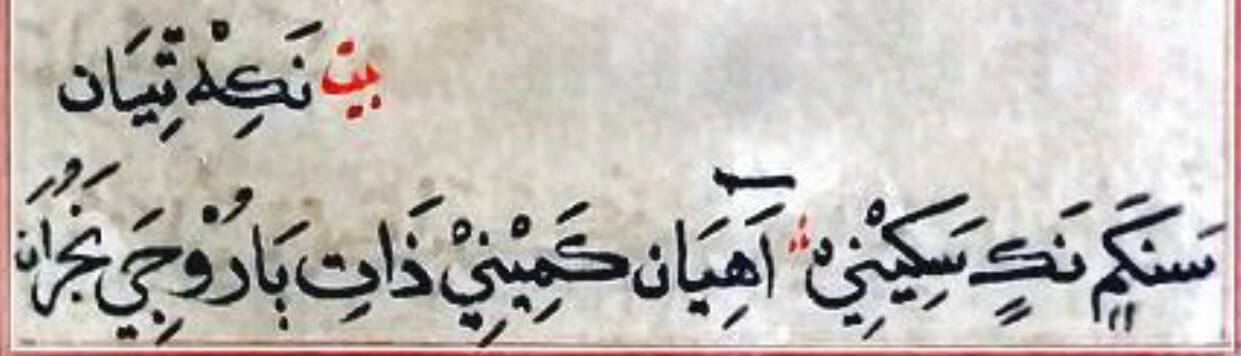 بيت نَڪِهْ تِّيَان
سَنكَمٍ نَڪٍ سَكِيْنِيْ؞ اَهِيَان ڪَمِيْنِيْ ذَاتِ بَارُوْجَي نَجُرَان